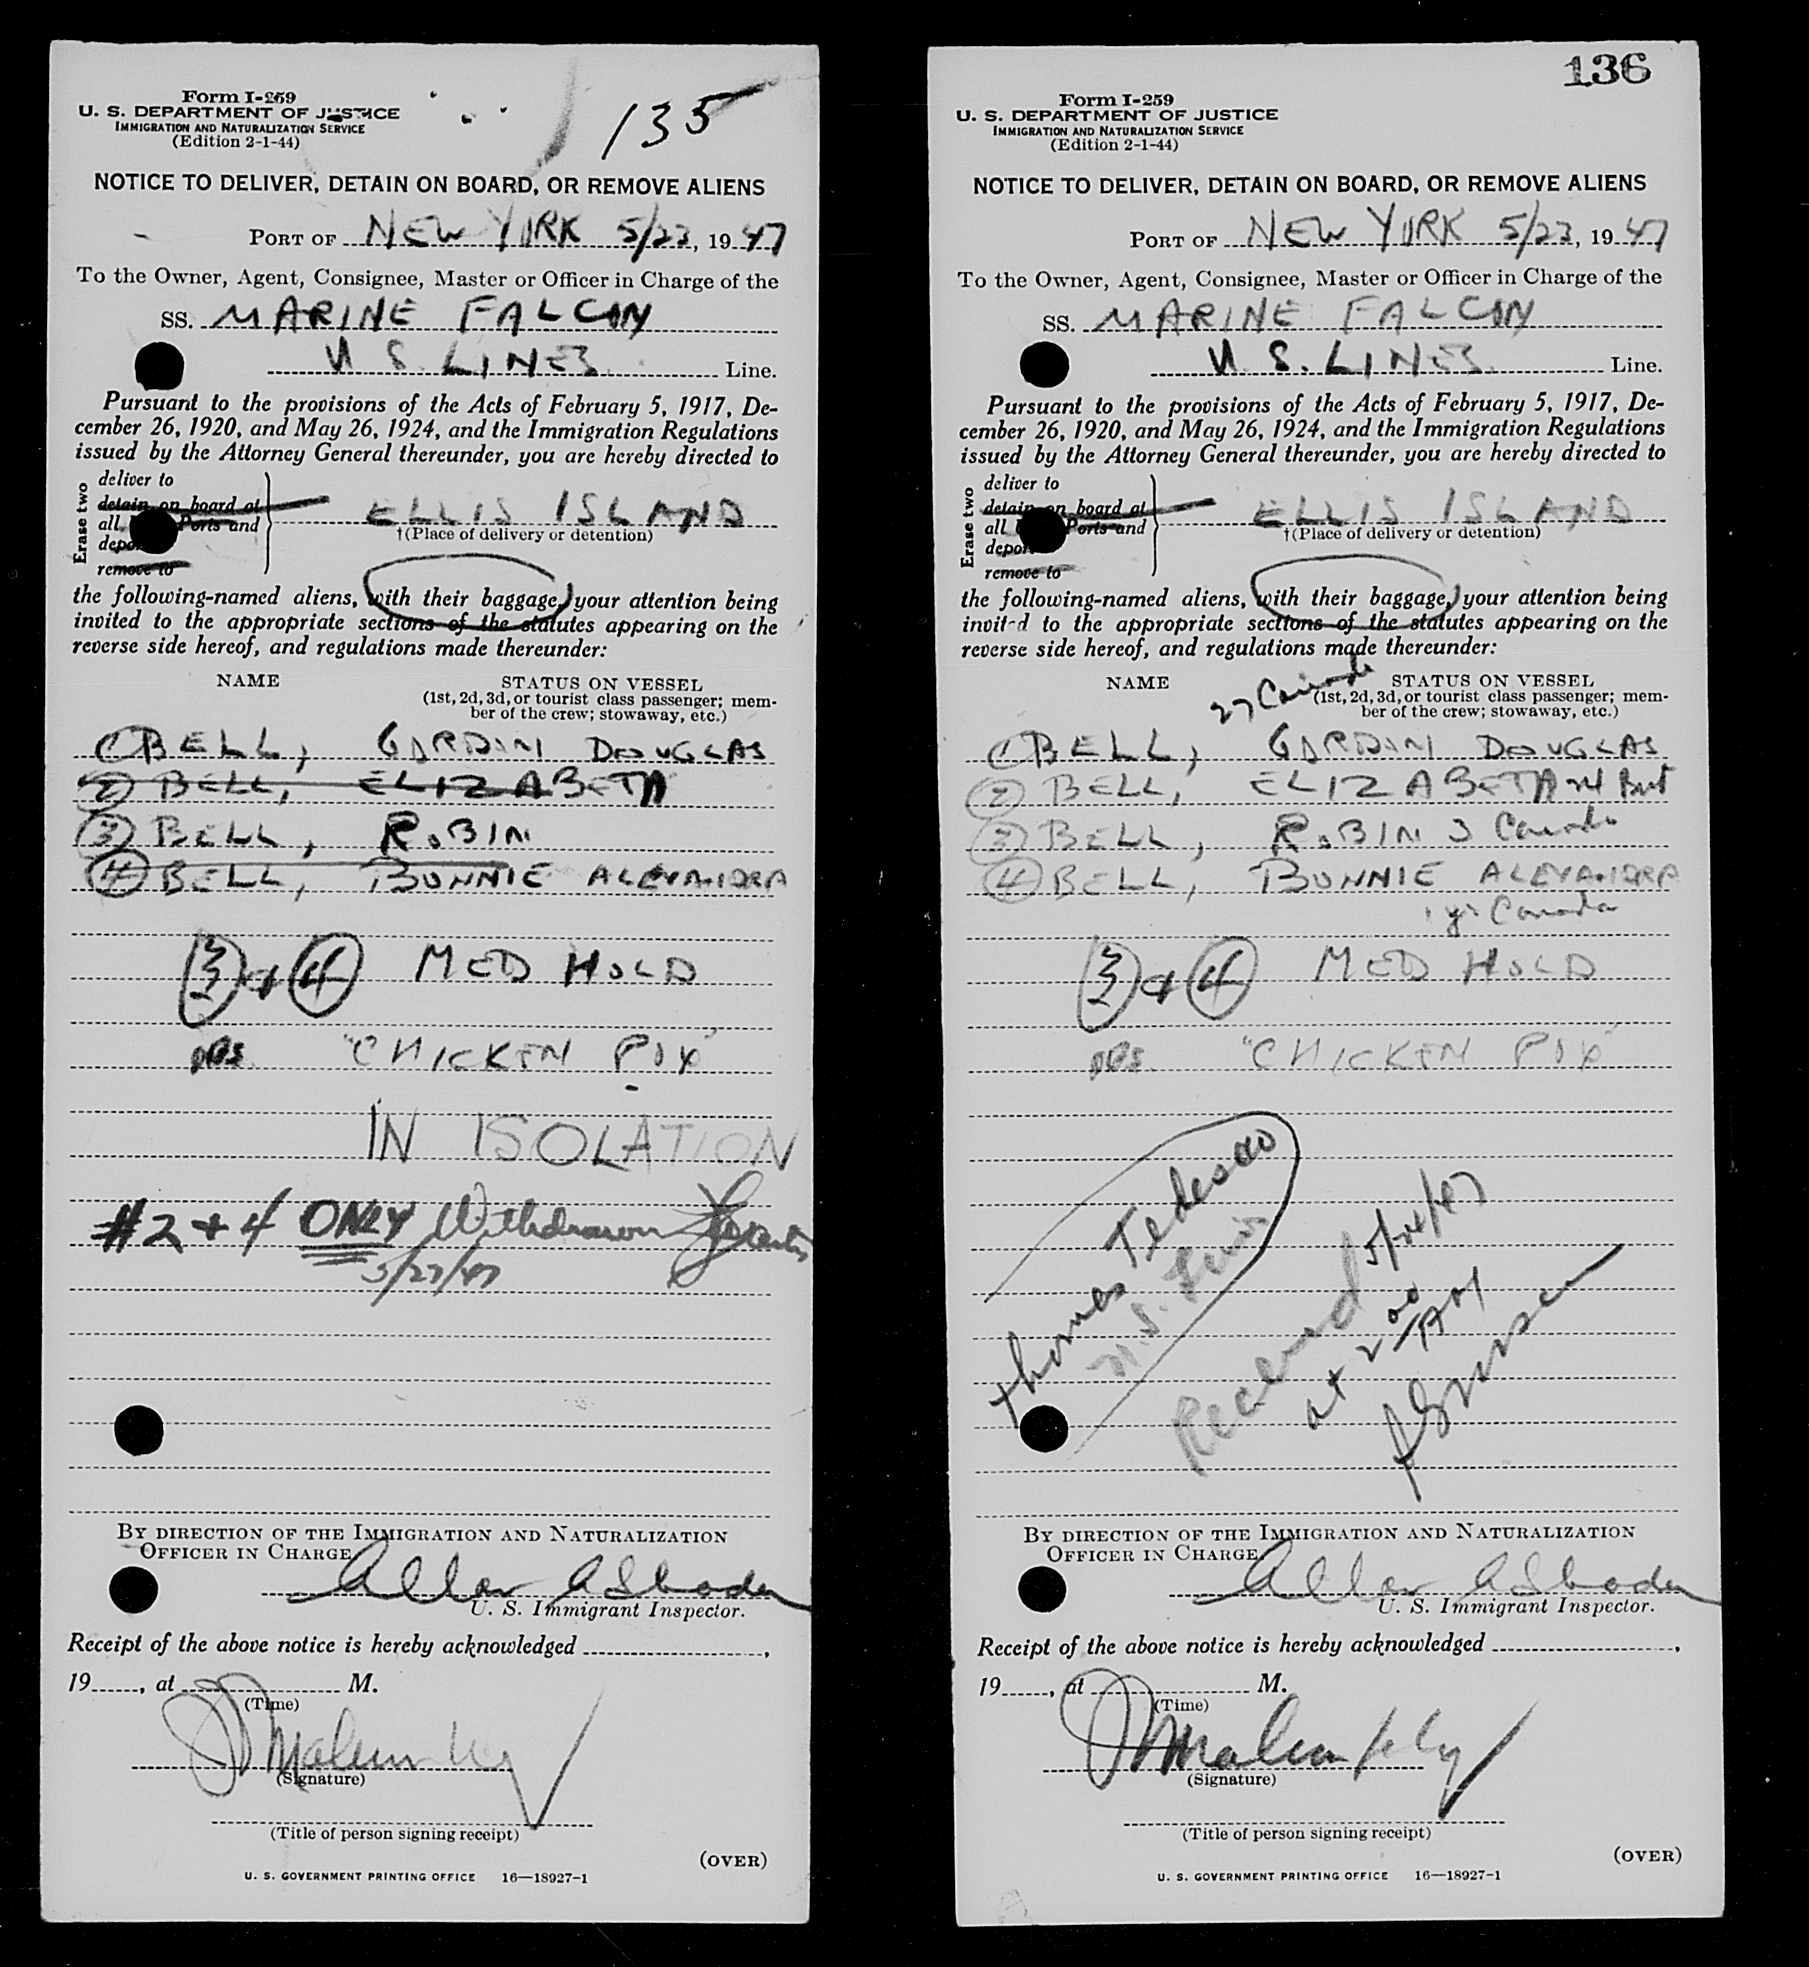 135
Form I-259
U. S. DEPARTMENT OF JUSTICE
IMMIGRATION AND NATURALIZATION SERVICE
(Edition 2-1-44)
NOTICE TO DELIVER, DETAIN ON BOARD, OR REMOVE ALIENS
PORT OF NEW YORK 5/23, 1947
To the Owner, Agent, Consignee, Master or Officer in Charge of the
SS. MARINE FALCON
U. S. LINES Line.
Pursuant to the provisions of the Acts of February 5, 1917, De-
cember 26, 1920, and May 26, 1924, and the Immigration Regulations
issued by the Attorney General thereunder, you are hereby directed to
Erase two
deliver to
detain on board at
all Ports and
remove to
ELLIS ISLAND
†(Place of delivery or detention)
the following-named aliens, with their baggage, your attention being
invited to the appropriate sections of the statutes appearing on the
reverse side hereof, and regulations made thereunder:
NAME
STATUS ON VESSEL
(1st, 2d, 3d, or tourist class passenger; mem-
ber of the crew; stowaway, etc.)
1 BELL, GORDON DOUGLAS
2 BELL, ELIZABETH
3 BELL, ROBIN
4 BELL, BONNIE ALEXANDRA
3 + 4 MED HOLD
OBS. "CHICKEN POX"
IN ISOLATION
#2 + 4 ONLY Withdrawn
5/27/47
BY DIRECTION OF THE IMMIGRATION AND NATURALIZATION
OFFICER IN CHARGE
U. S. Immigrant Inspector.
Receipt of the above notice is hereby acknowledged
19, at M.
(Time)
(Signature)
(Title of person signing receipt)
(OVER)
U. S. GOVERNMENT PRINTING OFFICE 16—18927-1
136
Form I-259
U. S. DEPARTMENT OF JUSTICE
IMMIGRATION AND NATURALIZATION SERVICE
(Edition 2-1-44)
NOTICE TO DELIVER, DETAIN ON BOARD, OR REMOVE ALIENS
PORT OF NEW YORK 5/23, 1947
To the Owner, Agent, Consignee, Master or Officer in Charge of the
SS. MARINE FALCON
U. S. LINES Line.
Pursuant to the provisions of the Acts of February 5, 1917, De-
cember 26, 1920, and May 26, 1924, and the Immigration Regulations
issued by the Attorney General thereunder, you are hereby directed to
Erase two
deliver to
detain on board at
all Ports and
remove to
ELLIS ISLAND
†(Place of delivery or detention)
the following-named aliens, with their baggage, your attention being
invited to the appropriate sections of the statutes appearing on the
reverse side hereof, and regulations made thereunder:
NAME
STATUS ON VESSEL
(1st, 2d, 3d, or tourist class passenger; mem-
ber of the crew; stowaway, etc.)
27 Canada
1 BELL, GORDON DOUGLAS
2 BELL, ELIZABETH 24 Brit
3 BELL, ROBIN 3 Canada
4 BELL, BONNIE ALEXANDRA
1 yr Canada
3 + 4 MED HOLD
OBS. "CHICKEN POX"
Thomas Tedesco
Received 5/24/47
at 2 00
BY DIRECTION OF THE IMMIGRATION AND NATURALIZATION
OFFICER IN CHARGE
U. S. Immigrant Inspector.
Receipt of the above notice is hereby acknowledged
19, at M.
(Time)
(Signature)
(Title of person signing receipt)
(OVER)
U. S. GOVERNMENT PRINTING OFFICE 16—18927-1